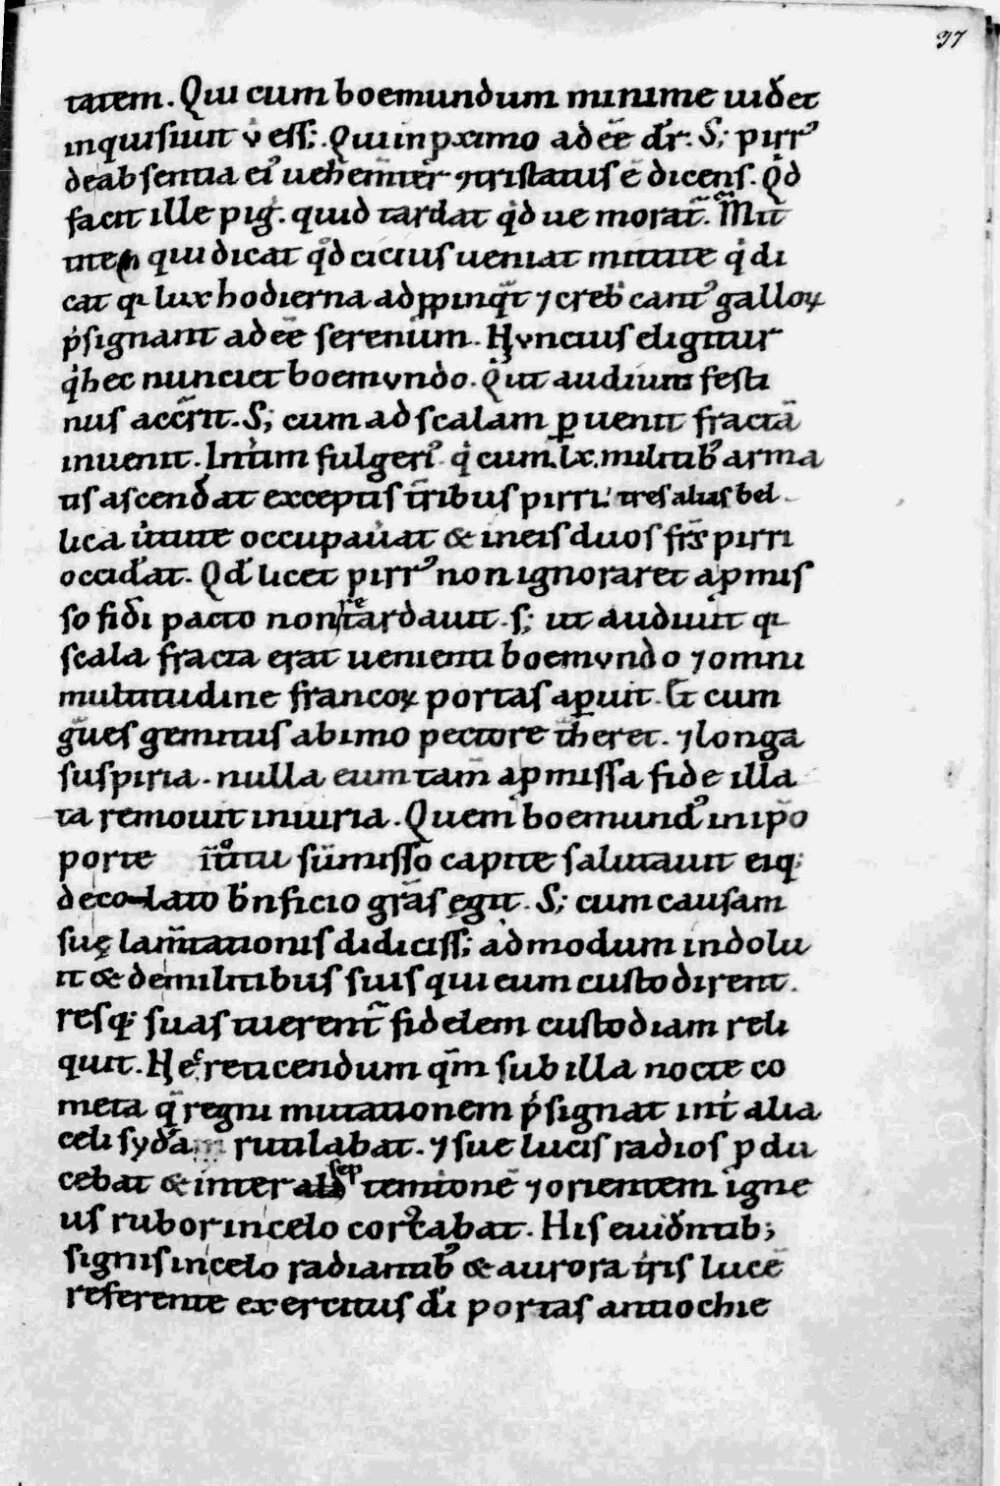 37
tatem. Qui cum boemundum minime uid̄et
inquisiuit u̇ ess&; Qui in pximo adeē dr̄. S; pirr᾽
de absentia ei᾽ uehem̄ter ⁊tristatus ē dicens. Qd̄
facit ille pig̓. quid tardat qͥd ue morat᷑. Mit
tite qui dicat qͦd cicius ueniat mittite qͥ di
cat qꝛ lux hodierna adꝓpinq̄t ⁊ creb̓ cant᾽ galloꝝ
p̓signant adeē serenum. Huncius eligitur
qͥ hec nunciet boemundo. Qͥ ut audiuit festi
nus acc̄rit. S; cum ad scalam ꝑuenit fractā
inuenit. Int̓im fulgeri᾽ qͥ cum .lx. militib᾽ arma
tis ascend̓at exceptis t̄ribus pirri tres alias bel
lica u̓tute occupau̓at & in eis duos fr̄s pirri
occid̓at. Qd̄ licet pirr᾽ non ignoraret a ꝓmis
so fid̓i pacto non retardauit. s; ut audiuit qꝛ
scala fracta erat uenienti boemundo ⁊ omni
multitudine francoꝝ portas aꝑuit. Et cum
g̃ues gemitus ab imo pectore t̃heret. ⁊ longa
suspiria. nulla eum tam̄ a ꝓmissa fide illa
ta remouit iniuria. Quem boemund᾽ in ip̄o
porte īt̊itu sūmisso capite salutauit eiq;
de collato b̄nficio gr̄as egit. S; cum causam
suę lam̄tationis didiciss&; admodum indolu
it & de militibus suis qui eum custodirent.
resq; suas tuerent᷑ fidelem custodiam reli
quit. Hec reticendum qm̄ sub illa nocte co
meta q̄ regni mutationem p̓signat int̓ alia
celi syd̓a rutilabat. ⁊ sue lucis radios ꝓdu
cebat & inter septemtionē ⁊ orientem igne
us rubor in celo cor̓cabat. His euid̄ntib;
signis in celo radiantib᾽ & aurora t̓ris lucē
referente exercitus di᷑ portas antiochie